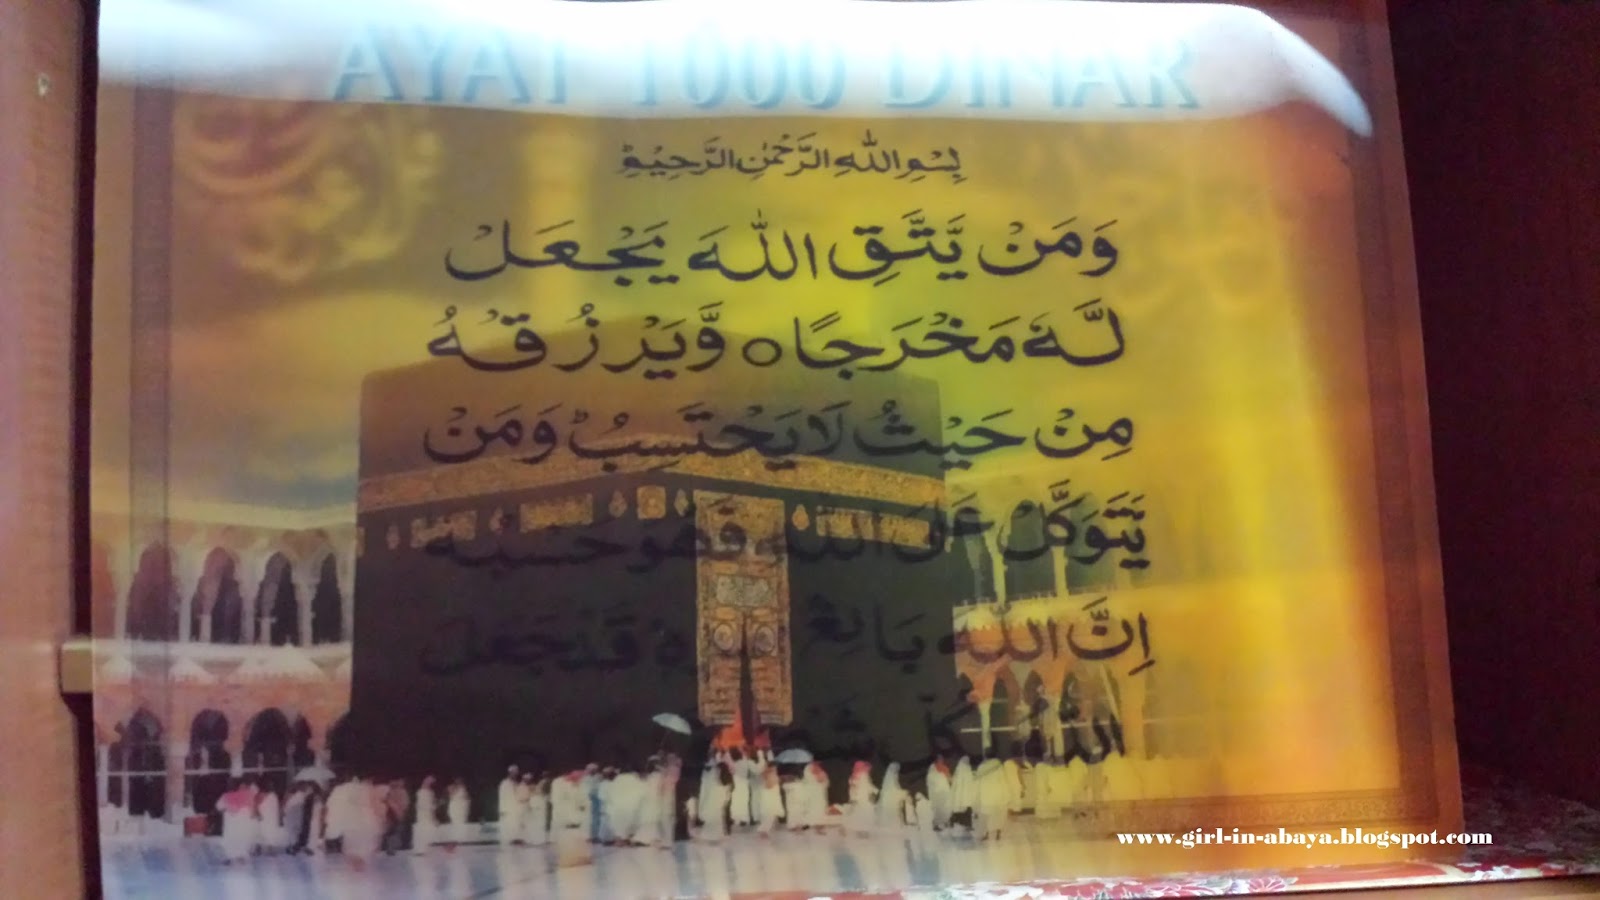 AYAT 1000 DINAR
بِسْمِ اللّٰهِ الرَّحْمٰنِ الرَّحِيْمِ
وَمَنْ يَّتَّقِ اللّٰهَ يَجْعَلْ
لَّهٗ مَخْرَجًا ○ وَّيَرْزُقْهُ
مِنْ حَيْثُ لَا يَحْتَسِبُ ؕ وَمَنْ
يَّتَوَكَّلْ عَلَى اللّٰهِ فَهُوَ حَسْبُهٗ
اِنَّ اللّٰهَ بَالِغُ قَدْ جَعَلَ
اللّٰهُ لِكُلِّ
www.girl-in-abaya.blogspot.com